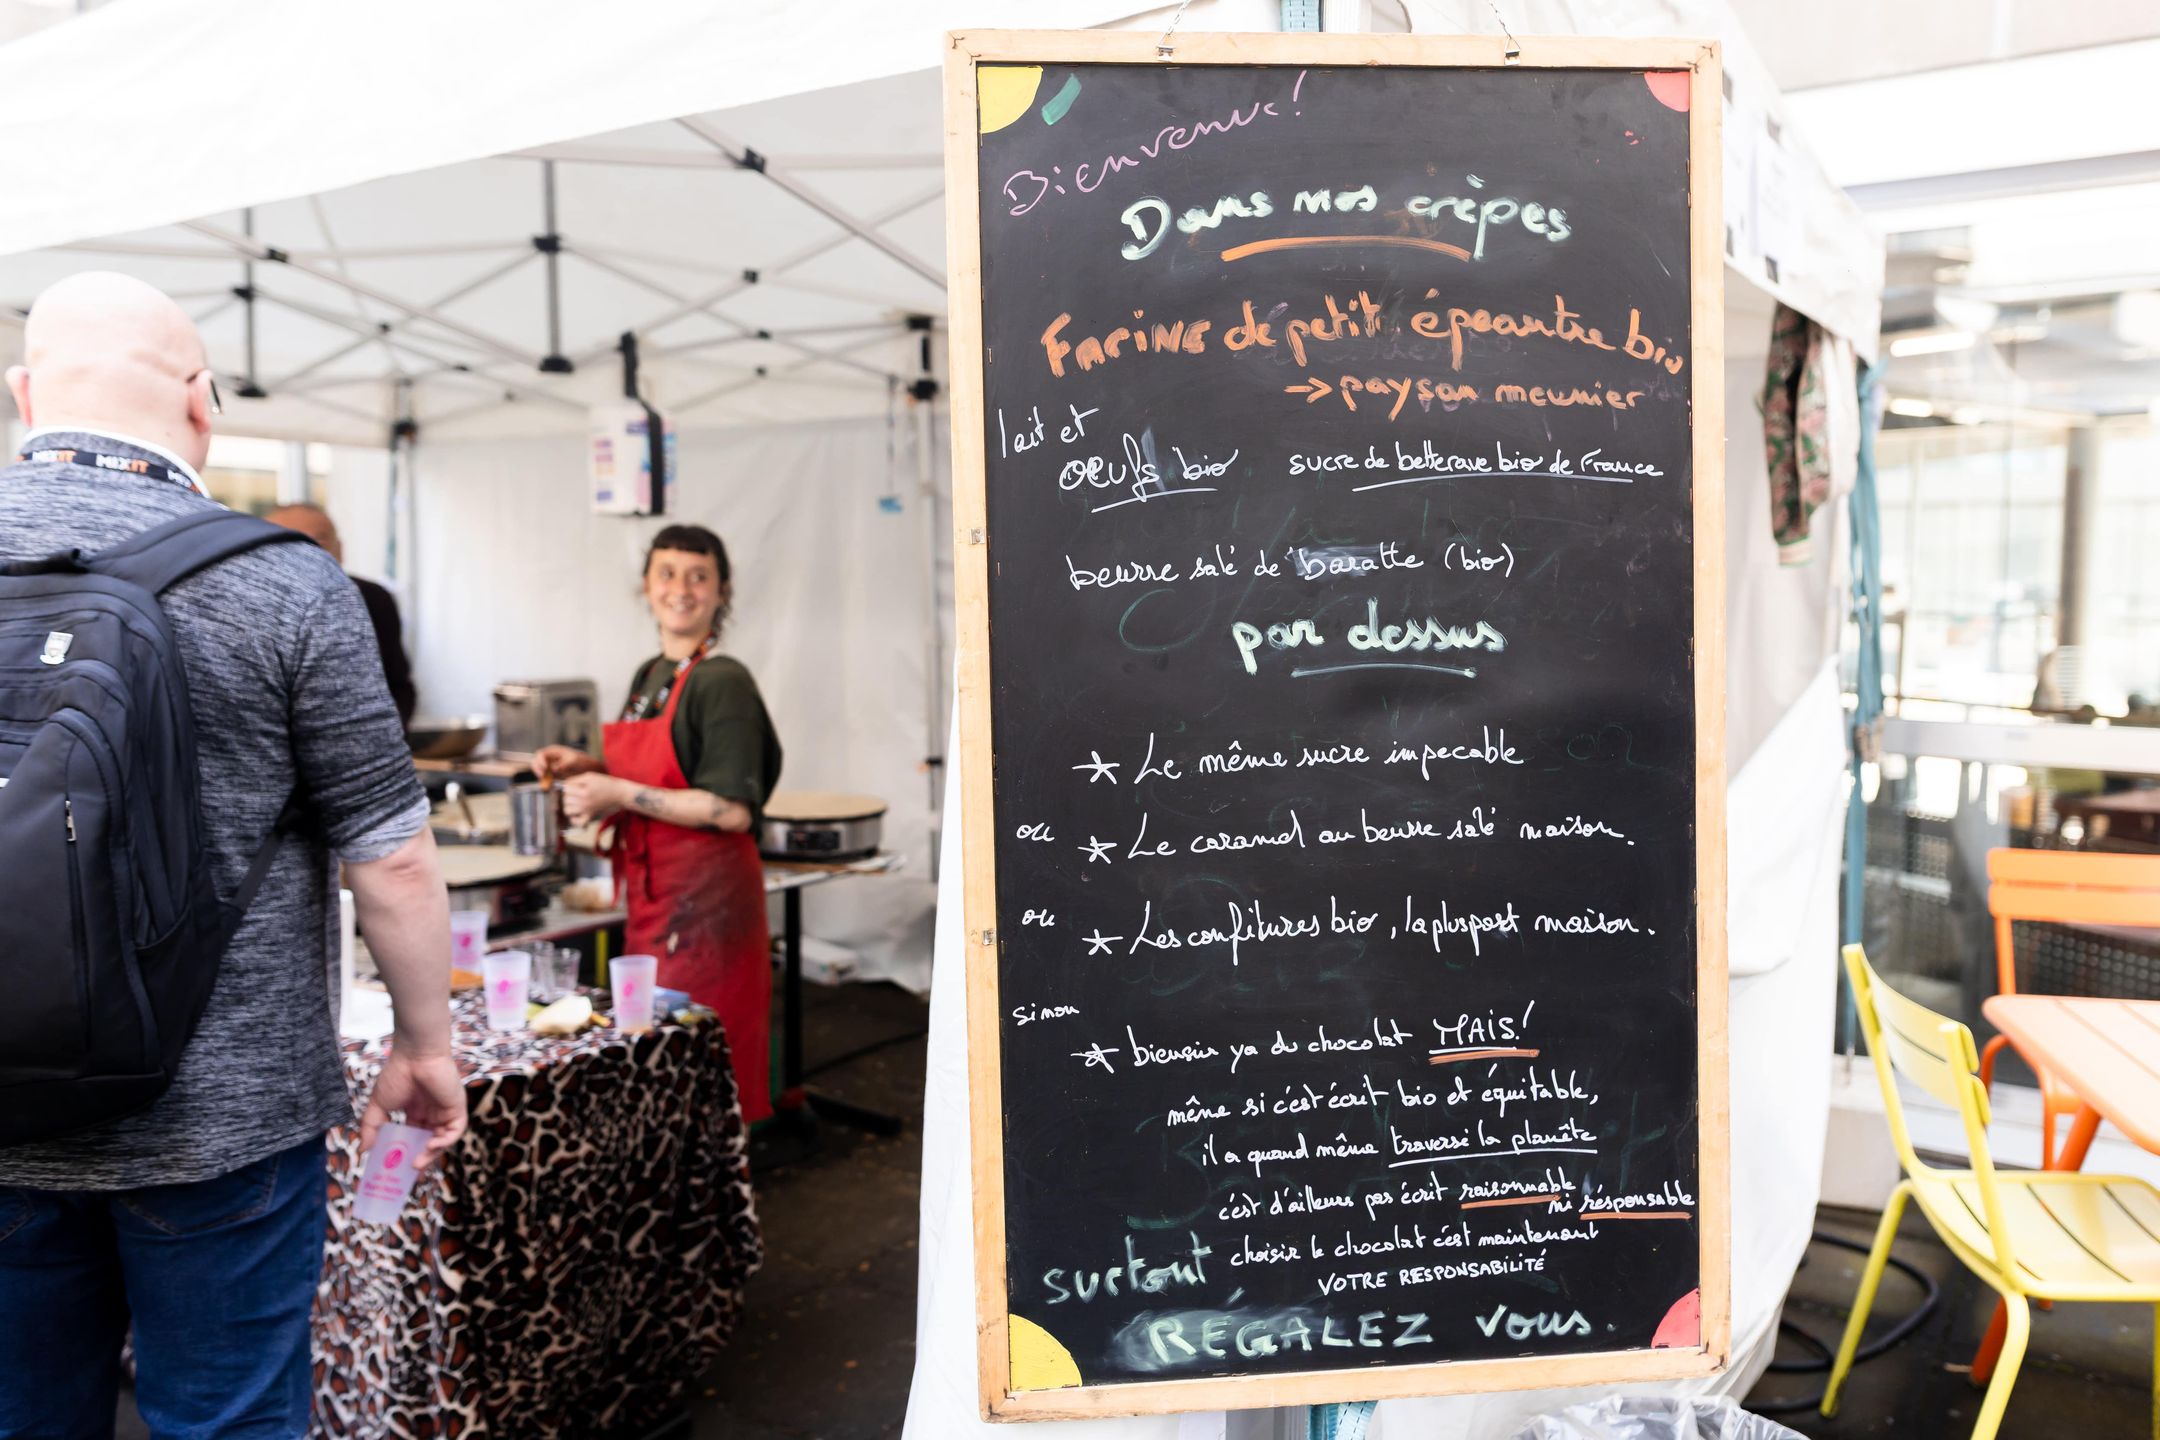 Bienvenue!
Dans nos crêpes
Farine de petit épeautre bio
→ paysan meunier
lait et
œufs bio
sucre de betterave bio de France
beurre salé de baratte (bio)
par dessus
* Le même sucre impecable
ou * Le caramel au beurre salé maison.
ou * Les confitures bio, la pluspart maison.
sinon
* biensûr ya du chocolat MAIS!
même si c'est écrit bio et équitable,
il a quand même traversé la planête
c'est d'ailleurs pas écrit raisonnable
ni résponsable
choisir le chocolat c'est maintenant
VOTRE RESPONSABILITÉ
surtout
RÉGALEZ vous.
MiXiT
MiXiT